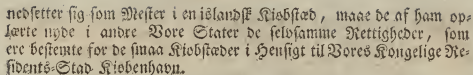 nedsetter sig som Mester i en islandsk Kiøbstæd, maae de af ham op-
lærte nyde i andre Vore Stater de selvsamme Rettigheder, som
ere bestemte for de smaa Kiøbstæder i Hensigt til Vores Kongelige Re-
sidents-Stad Kiøbenhavn.